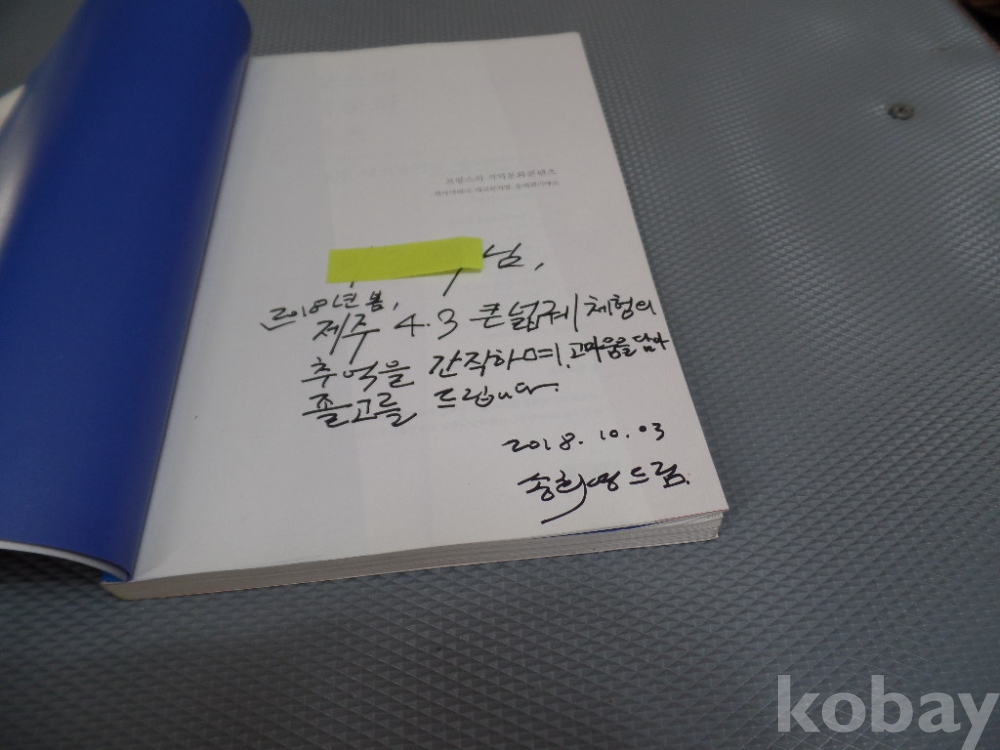 프랑스의 기억문화콘텐츠
님,
2018년 봄,
제주 4.3 큰넓궤 체험의
추억을 간직하며, 고마움을 담아
졸고를 드립니다.
2018. 10. 03
송희영 드림.
kobay